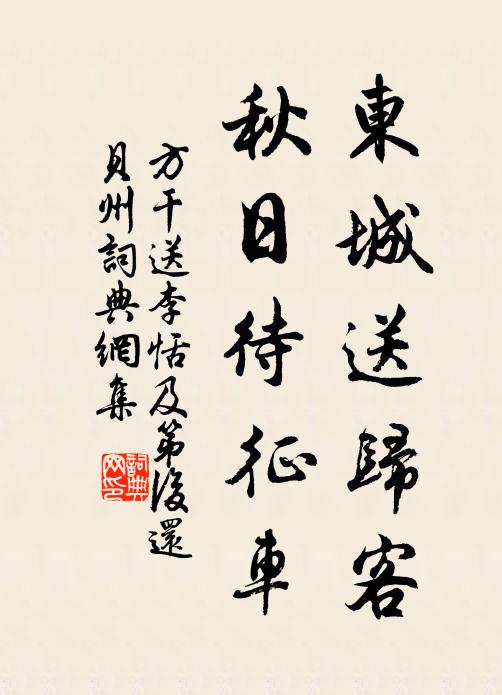 東城送歸客
秋日待征車
方干送李恬及第後還
貝州詞典網集
詞典
网印